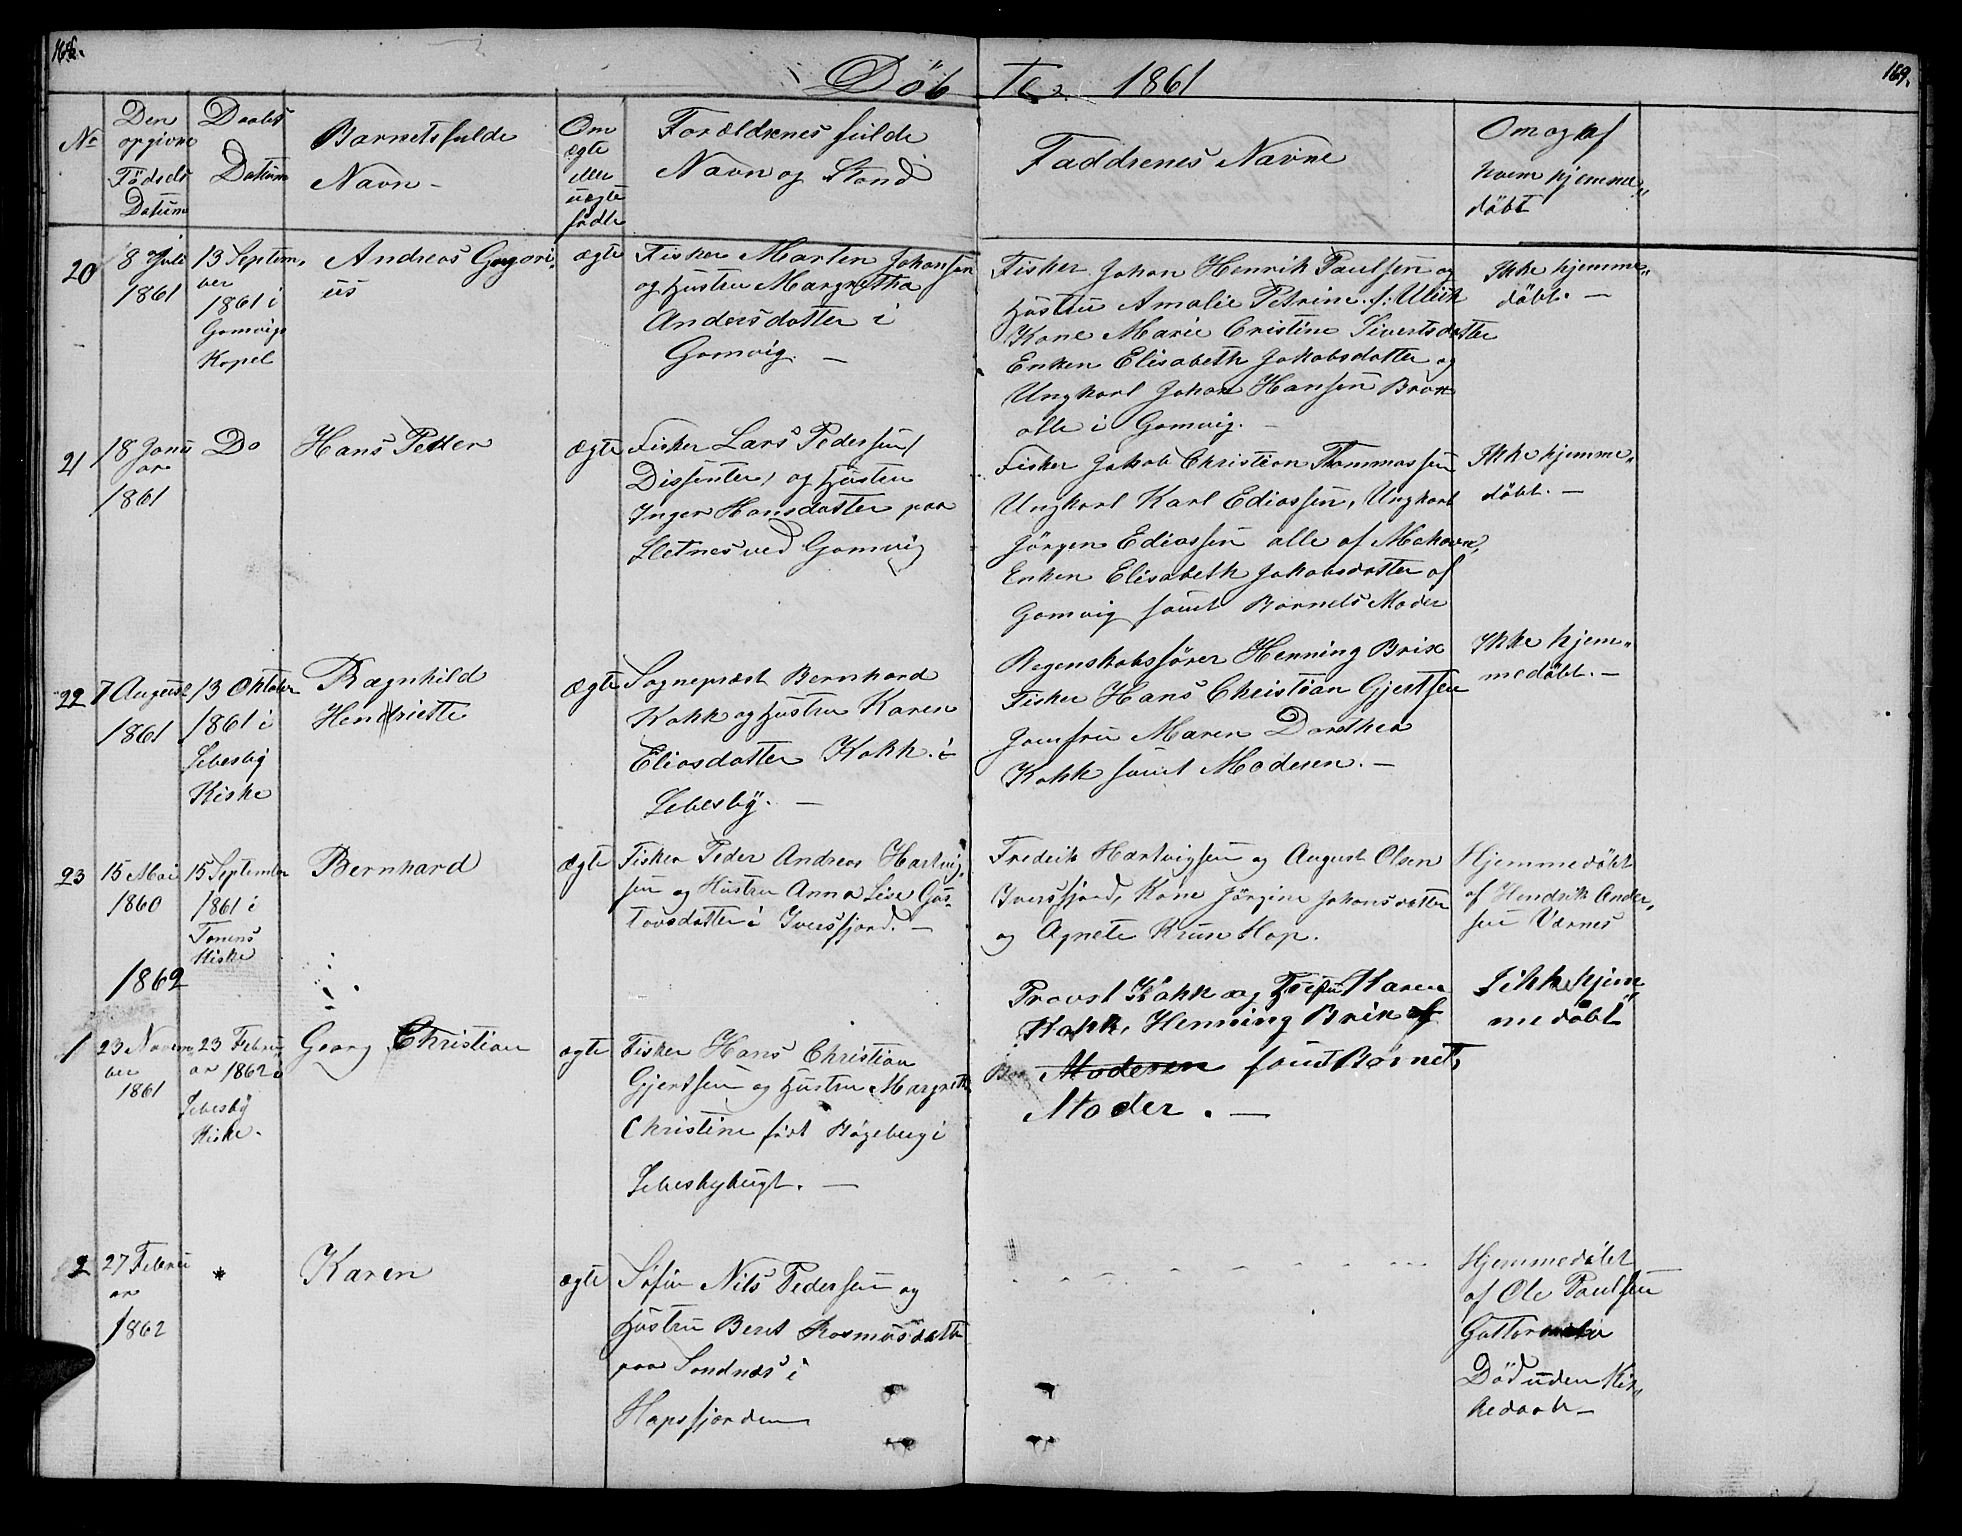 168.
169.
Döb te 1861
No
Den
opgivne
Födsels
Datum
Daabs
Datum
Barnets fulde
Navn
Om
ægte
eller
uægte
födte
Forældrenes fulde
Navn og Stand
Faddrenes Navne
Om og af
hvem hjemme„
döbt
20
8 Juli
1861
13 Septem„
ber
1861 i
Gamvigs
Kapel
Andreas Gregori„
us
ægte
Fisker Martin Johansen
og Hustru Margretha
Andersdatter i
Gamvig. —
Fisker Johan Henrik Paulsen og
Hustru Amalie Petrine f: Ulrik
Kone Marie Cristine Sivertsdatter
Enken Elisabeth Jakobsdatter og
Ungkarl Johan Hansen Brox
alle i Gamvig. —
Ikke hjemme„
döbt. —
21
18 Janu
ar
1861
Do
Hans Petter
ægte
Fisker Lars Pedersen (
Dissenter) og Hustru
Inger Hansdatter paa
Sletnes ved Gamvig
Fisker Jakob Christian Thommassen
Ungkarl Karl Ediassen, Ungkarl
Jörgen Ediassen alle af Mehavn,
Enken Elisabeth Jakobsdatter af
Gamvig samt Barnets Moder
Ikke hjemme„
döbt. —
22
7 August
1861
13 Oktober
1861 i
Lebesby
Kirke
Ragnhild
Hendriette
ægte
Sognepræst Bernhard
Kokk og Hustru Karen
Eliasdatter Kokk i
Lebesby. —
Regenskabsförer Henning Brix
Fisker Hans Christian Gjertsen
Jomfru Maren Dorothea
Kokk samt Moderen. —
Ikke hjem„
medöbt. —
23
15 Mai
1860
15 September
1861 i
Tanens
Kirke
Bernhard
ægte
Fisker Peder Andreas Hartvig„
sen og Hustru Anna Lise Gus„
tavsdatter i Iversfjord. —
Fredrik Hartvigsen og August Olsen
Iversfjord, Kone Jörgine Johansdatter
og Agnete Krun Hop.
Hjemmedöbt
af Hendrik Ander„
sen Værnes
1862
1
23 Novem„
ber
1861
23 Febru„
ar 1862 i
Lebesby
Kirke.
Georg Christian
ægte
Fisker Hans Christian
Gjertsen og Hustru Margrethe
Christine födt Bögeberg i
Lebesbybugt. —
Provst Kokk og Frue Karen
Kokk, Henning Brix
Moderen samt Barnets
Moder. —
Ikke hjem„
medöbt
2
27 Febru
ar
1862
*
Karen
ægte
Söfin Nils Pedersen og
Hustru Beret Rasmusdatter
paa Sandnæs i
Hopsfjorden
Hjemmedöbt
af Ole Paulsen
Död uden Kir„
kedaab —